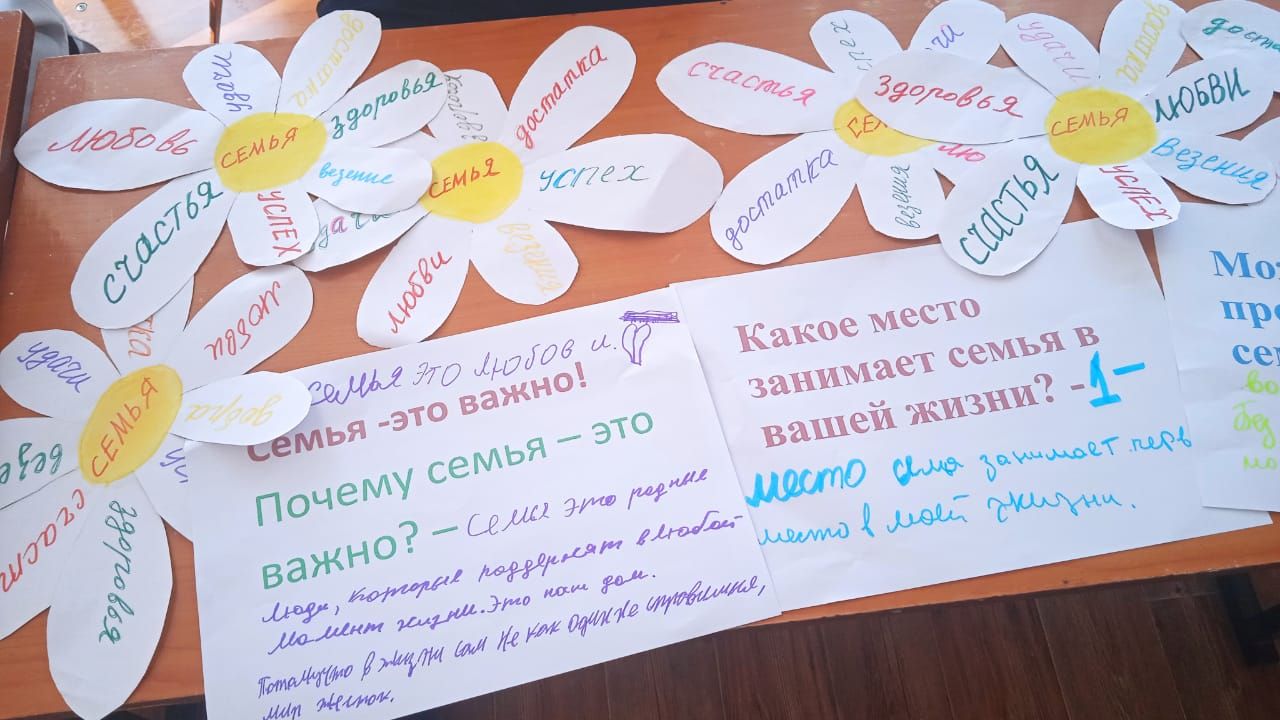 любовь
удачи
достатка
здоровья
везение
успех
счастья
СЕМЬЯ
здоровья
достатка
успех
везения
любви
дачи
СЕМЬЯ
счастья
успех
достатка
везения
лю
СЕМ
здоровья
удачи
достатка
ЛЮБВИ
Везения
УСПЕХ
СЧАСТЬЯ
СЕМЬЯ
дост
удачи
тка
любви
добра
уд
здоровья
счаст
везе
СЕМЬЯ
семья это любов и.
Семья -это важно!
Почему семья – это
важно? – Семья это родные
люди, которые поддержат в любой
момент жизни. Это наш дом.
Потомучто в жизни сам не как один не справишся,
мир жесток.
Какое место
занимает семья в
вашей жизни? -1-
место семя занимает перв
место в моей жизни.
Мо
про
сем